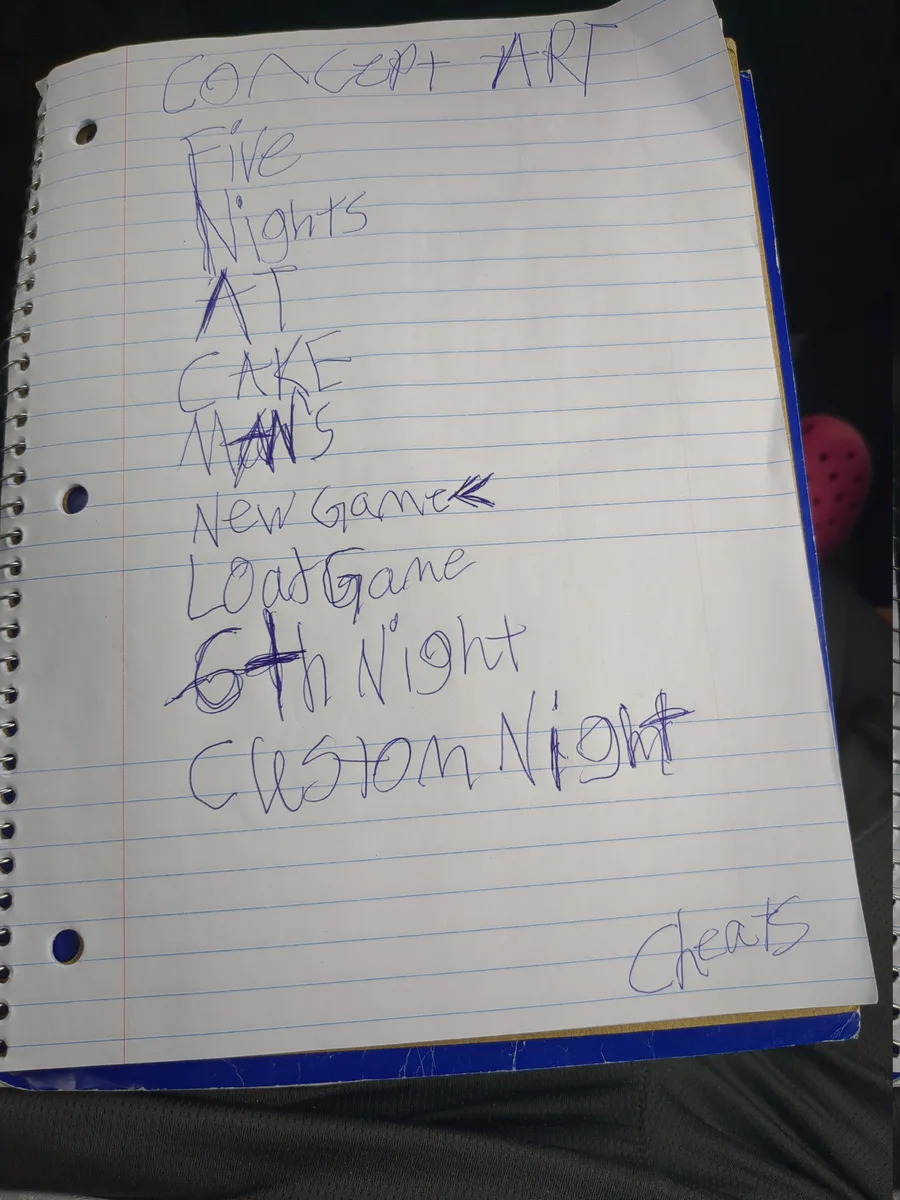 CONCEPT ART
Five
Nights
AT
CAKE
MAN'S
New Game <<
Load Game
6th Night
Custom Night
Cheats